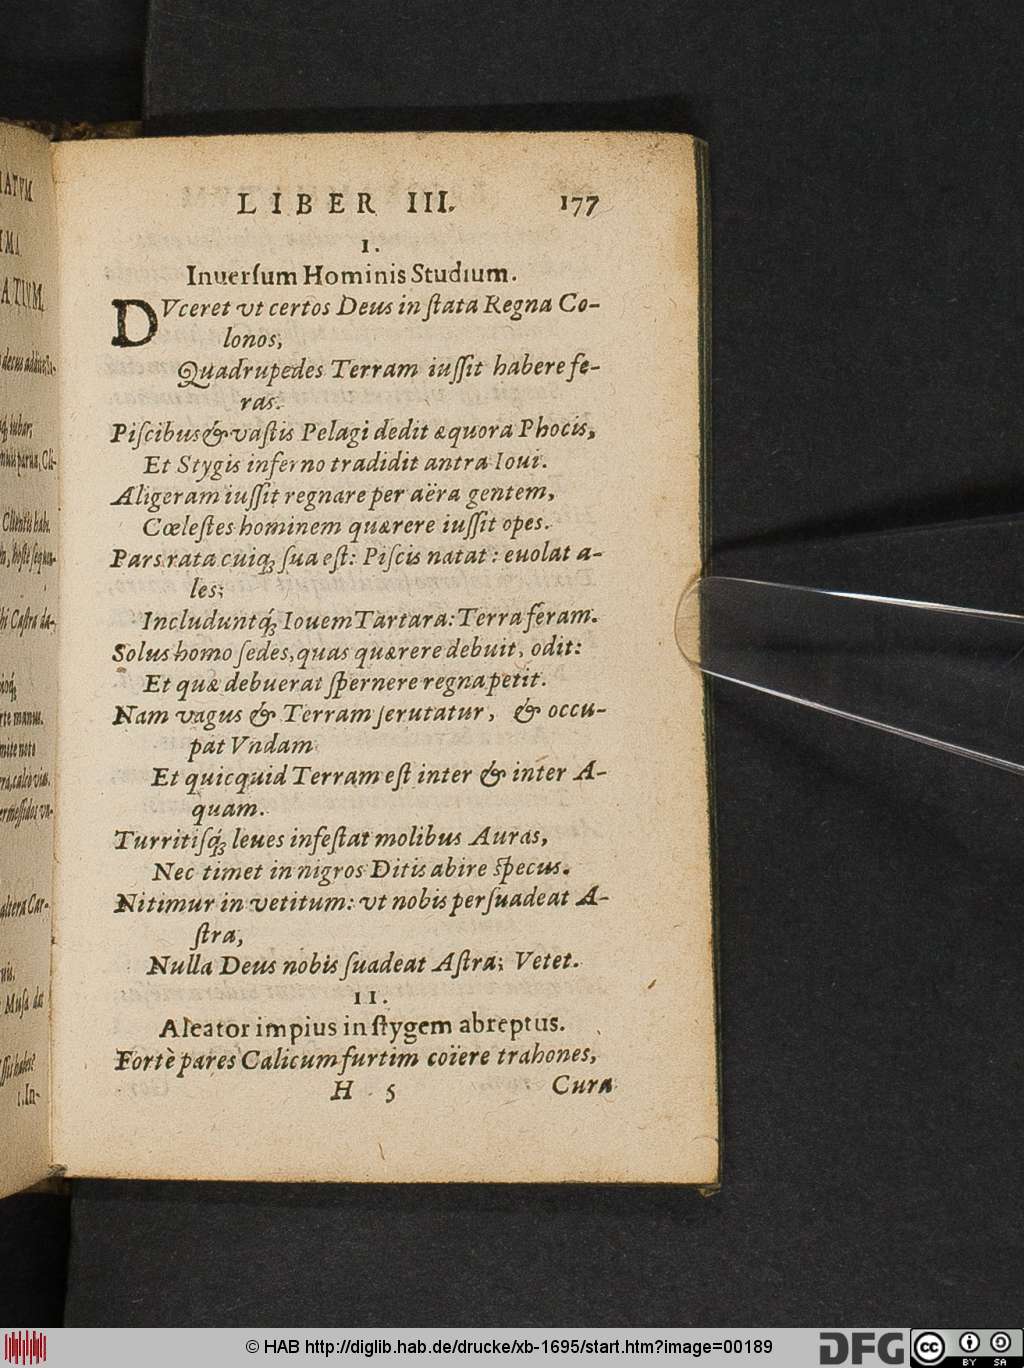 LIBER III. 177
I.
Inuerſum Hominis Studium.
DVceret vt certos Deus in ſtata Regna Co-
lonos,
Quadrupedes Terram iuſſit habere fe-
ras.
Piſcibus & vaſtis Pelagi dedit æquora Phocis,
Et Stygis inferno tradidit antra Ioui.
Aligeram iuſſit regnare per aëra gentem,
Cœleſtes hominem quærere iuſſit opes.
Pars rata cuiq; ſua eſt: Piſcis natat: euolat a-
les;
Includuntq́; Iouem Tartara: Terra feram.
Solus homo ſedes, quas quærere debuit, odit:
Et quæ debuerat ſpernere regna petit.
Nam vagus & Terram ſcrutatur, & occu-
pat Vndam
Et quicquid Terram eſt inter & inter A-
quam.
Turritiſq́; leues infeſtat molibus Auras,
Nec timet in nigros Ditis abire ſpecus.
Nitimur in vetitum: vt nobis perſuadeat A-
ſtra,
Nulla Deus nobis ſuadeat Aſtra; Vetet.
II.
Aleator impius in ſtygem abreptus.
Fortè pares Calicum furtim coïere trahones,
H 5 Cura
IATVM
IMA
ATIVM
1.In-
© HAB http://diglib.hab.de/drucke/xb-1695/start.htm?image=00189
DFG
cc BY SA